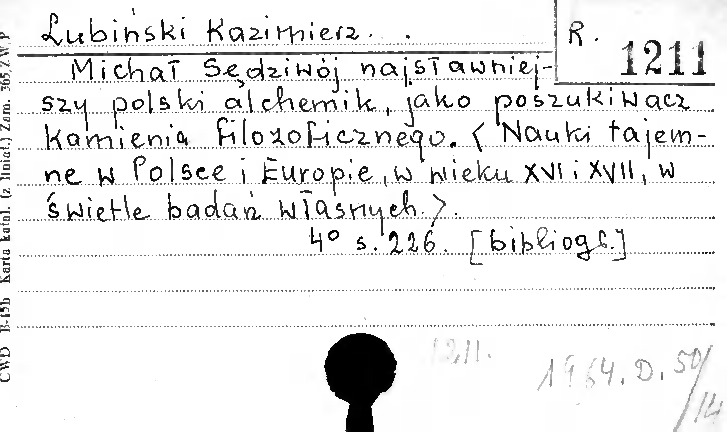 Łubiński Kazimierz. .
R. 1211
Michał Sędziwój najsławniej-
szy polski alchemik, jako poszukiwacz
kamienia filozoficznego. (Nauki tajem-
ne w Polsce i Europie, w wieku XVI i XVII, w
świetle badań własnych.).
4° s. 226. [bibliogr.]
12.11.
1964. D. 50/14
CWD B-45b Karta katal. (z liniat.) Zam. 365, Z.W.P